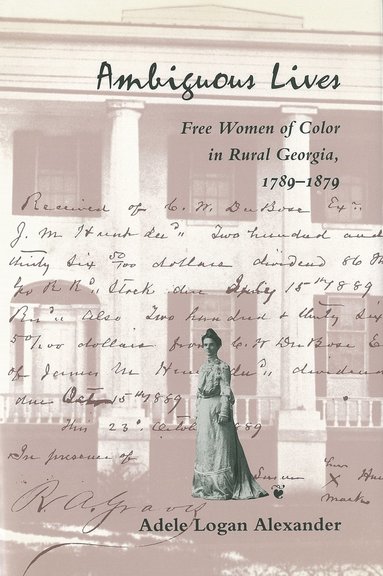 Ambiguous Lives
Free Women of Color
in Rural Georgia,
1789–1879
Received of C. W. DuBose Exr
J. M. Hunt dec'd Two hundred and
thirty six 50/100 dollars dividend 86
Ga R R Stock due July 15th 1889
Also Two hundred & thirty six
50/100 dollars from C W DuBose E
of James M dividend
due Oct 15th 1889
this 23d Octo 1889
In presence of
her
X
mark
R. A. Graves
Adele Logan Alexander